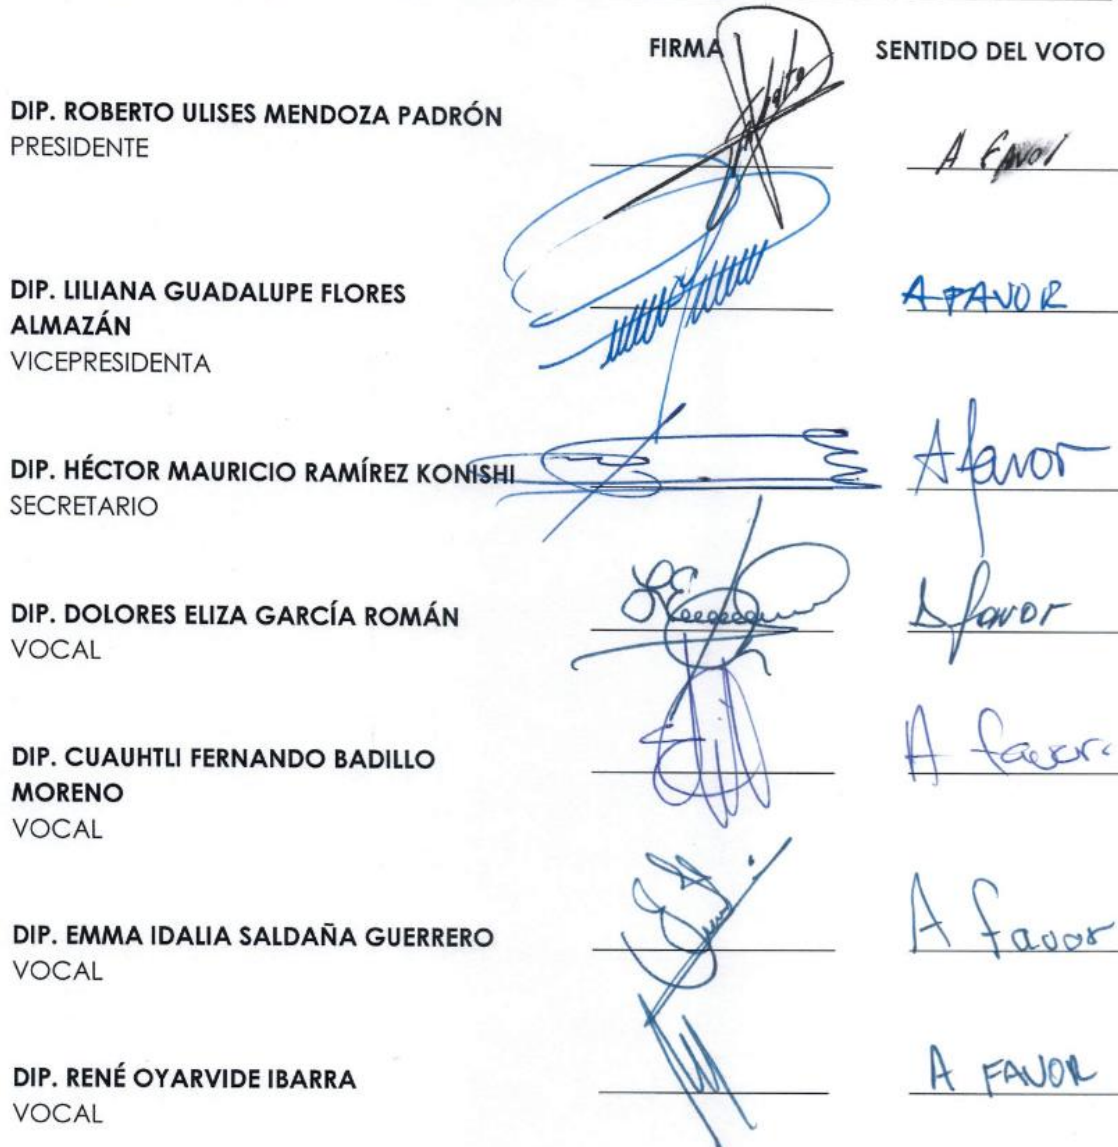 FIRMA SENTIDO DEL VOTO
DIP. ROBERTO ULISES MENDOZA PADRÓN
PRESIDENTE
A FAVOR
DIP. LILIANA GUADALUPE FLORES
ALMAZÁN
VICEPRESIDENTA
A FAVOR
DIP. HÉCTOR MAURICIO RAMÍREZ KONISHI
SECRETARIO
A favor
DIP. DOLORES ELIZA GARCÍA ROMÁN
VOCAL
A favor
DIP. CUAUHTLI FERNANDO BADILLO
MORENO
VOCAL
A favor
DIP. EMMA IDALIA SALDAÑA GUERRERO
VOCAL
A favor
DIP. RENÉ OYARVIDE IBARRA
VOCAL
A FAVOR